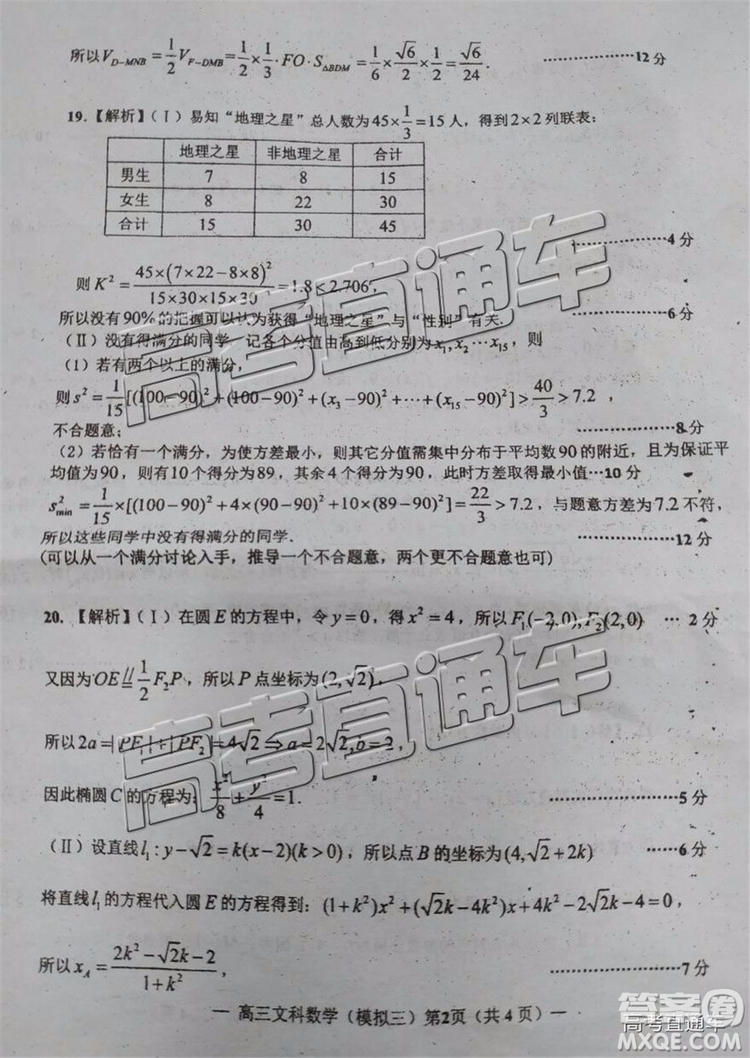 所以V_{D-MNB}=\frac{1}{2}V_{F-DMB}=\frac{1}{2}×\frac{1}{3}·FO·S_{△BDM}=\frac{1}{6}×\frac{\sqrt{6}}{2}×\frac{1}{2}=\frac{\sqrt{6}}{24}. ············12分
19.【解析】(Ⅰ)易知“地理之星”总人数为45×\frac{1}{3}=15人，得到2×2列联表：
地理之星 非地理之星 合计
男生 7 8 15
女生 8 22 30
合计 15 30 45
············4分
则K^2=\frac{45×(7×22-8×8)^2}{15×30×15×30}=1.8<2.706，
所以没有90%的把握可以认为获得“地理之星”与“性别”有关. ············6分
(Ⅱ)没有得满分的同学 记各个分值由高到低分别为x_1,x_2…x_{15}，则
(1)若有两个以上的满分，
则s^2=\frac{1}{15}[(100-90)^2+(100-90)^2+(x_3-90)^2+…+(x_{15}-90)^2]>\frac{40}{3}>7.2，
不合题意； ············8分
(2)若恰有一个满分，为使方差最小，则其它分值需集中分布于平均数90的附近，且为保证平
均值为90，则有10个得分为89，其余4个得分为90，此时方差取得最小值…10分
s_{min}^2=\frac{1}{15}×[(100-90)^2+4×(90-90)^2+10×(89-90)^2]=\frac{22}{3}>7.2，与题意方差为7.2不符，
所以这些同学中没有得满分的同学. ············12分
(可以从一个满分讨论入手，推导一个不合题意，两个更不合题意也可)
20.【解析】(Ⅰ)在圆E的方程中，令y=0，得x^2=4，所以F_1(-2,0),F_2(2,0) … 2分
又因为OE∥\frac{1}{2}F_2P，所以P点坐标为(2,\sqrt{2})，
所以2a=|PF_1|+|PF_2|=4\sqrt{2}⇒a=2\sqrt{2},b=2，
因此椭圆C的方程为：\frac{x^2}{8}+\frac{y^2}{4}=1. ············5分
(Ⅱ)设直线l_1:y-\sqrt{2}=k(x-2)(k>0)，所以点B的坐标为(4,\sqrt{2}+2k) ······6分
将直线l_1的方程代入圆E的方程得到：(1+k^2)x^2+(\sqrt{2}k-4k^2)x+4k^2-2\sqrt{2}k-4=0，
所以x_A=\frac{2k^2-\sqrt{2}k-2}{1+k^2}， ············7分
— 高三文科数学（模拟三）第2页（共4页）—
高考直通车
高考直通车
答案圈
高考直通车
MXQE.COM